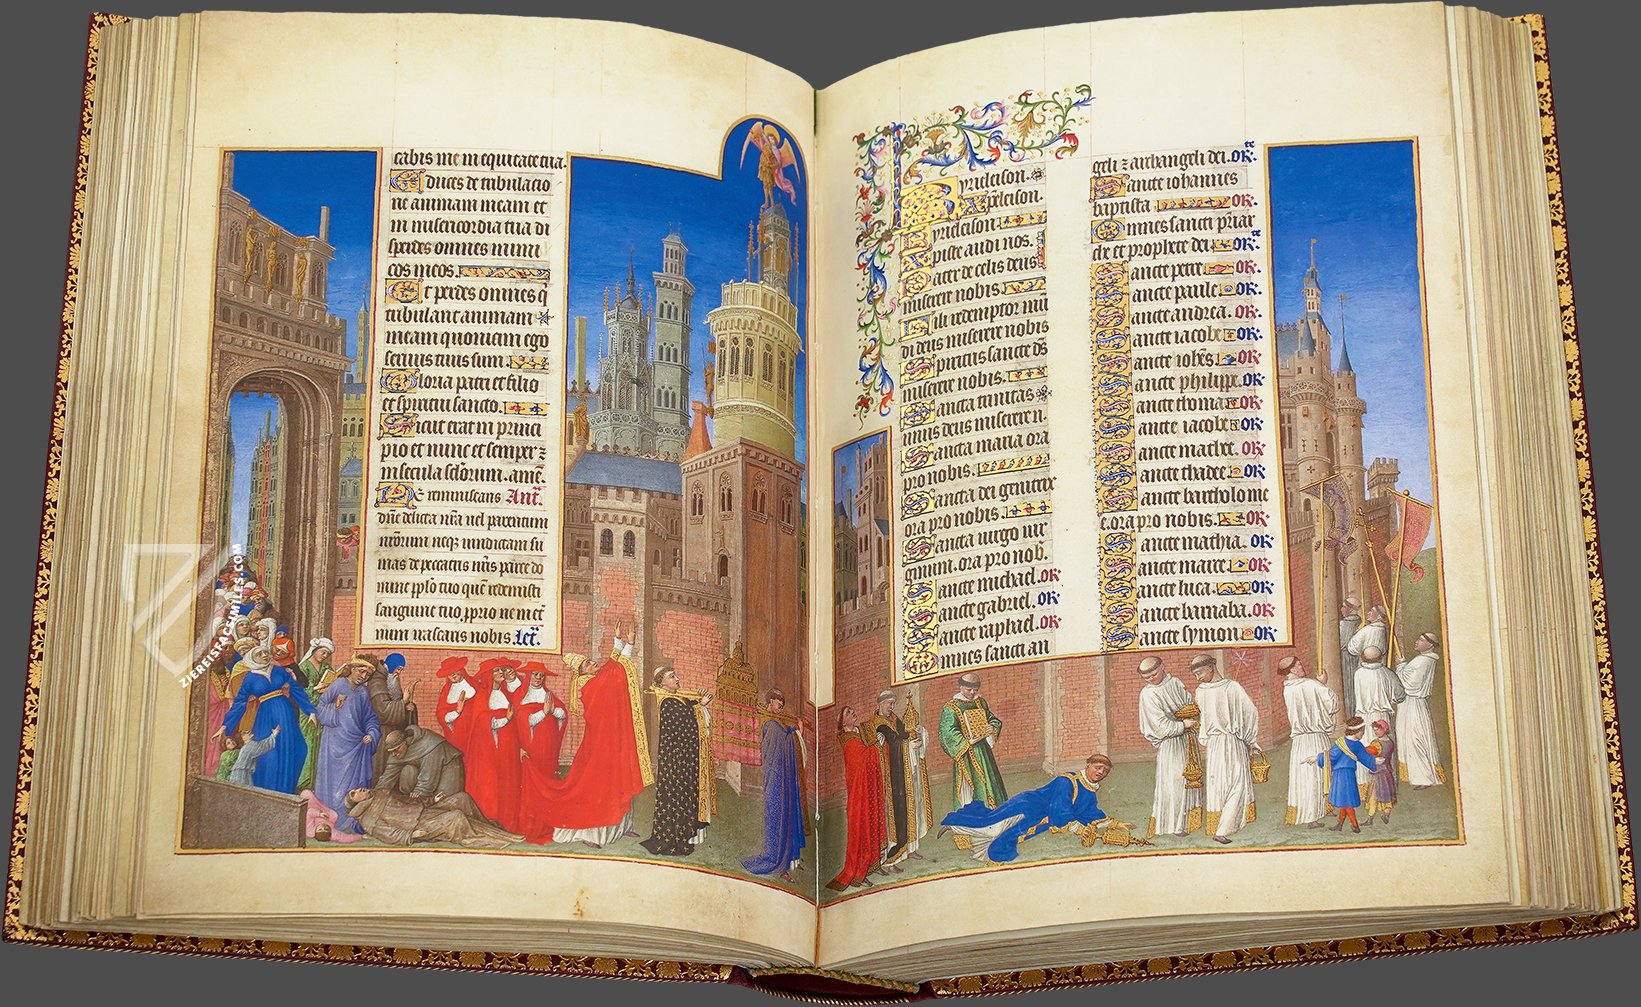 cabis me in equitate tua.
Educes de tribulacio
ne animam meam et
in misericordia tua di
sperdes omnes inimi
cos meos.
Et perdes omnes q̄
tribulant animam
meam quoniam ego
servus tuus sum.
Gloria patri et filio
et spiritui sancto.
Sicut erat in princi
pio et nunc et semper ⁊
in secula sclōrum. amē.
Ne reminiscaris Anī.
dn̄e delicta nr̄a vel parentum
nr̄orum neqꝫ vindictam su
mas de peccatis nr̄is parce do
mine pplo tuo quē redemisti
sanguine tuo p̄prio ne in et̄
num irascaris nobis. Let̄.
Kyrieleison.
Xp̄eleison.
Kyrieleison.
Xpiste audi nos.
Pater de celis deus
miserere nobis.
Fili redemptor mū
di deus miserere nobis
Spiritus sancte dē
miserere nobis.
Sancta trinitas
unus deus miserere n.
Sancta maria ora
pro nobis.
Sancta dei genitrix
ora pro nobis.
Sancta virgo vir
ginum. ora pro nob.
Sancte michael. or
Sancte gabriel. or
Sancte raphael. or
Omnes sancti an
geli ⁊ archangeli dei. or.te
Sancte iohannes
baptista or.
Omnes sancti p̄riar
che et prophete dei or.te
Sancte petre or.
Sancte paule or.
Sancte andrea. or.
Sancte iacobe or.
Sancte iohēs or.
Sancte philippe. or.
Sancte thoma or.
Sancte iacobe or.
Sancte mathee. or.
Sancte thadee or.
Sancte bartholome
e. ora pro nobis. or.
Sancte mathia. or.
Sancte marce or.
Sancte luca. or.
Sancte barnaba. or.
Sancte symon or.
ZIEREISFACSIMILES.COM